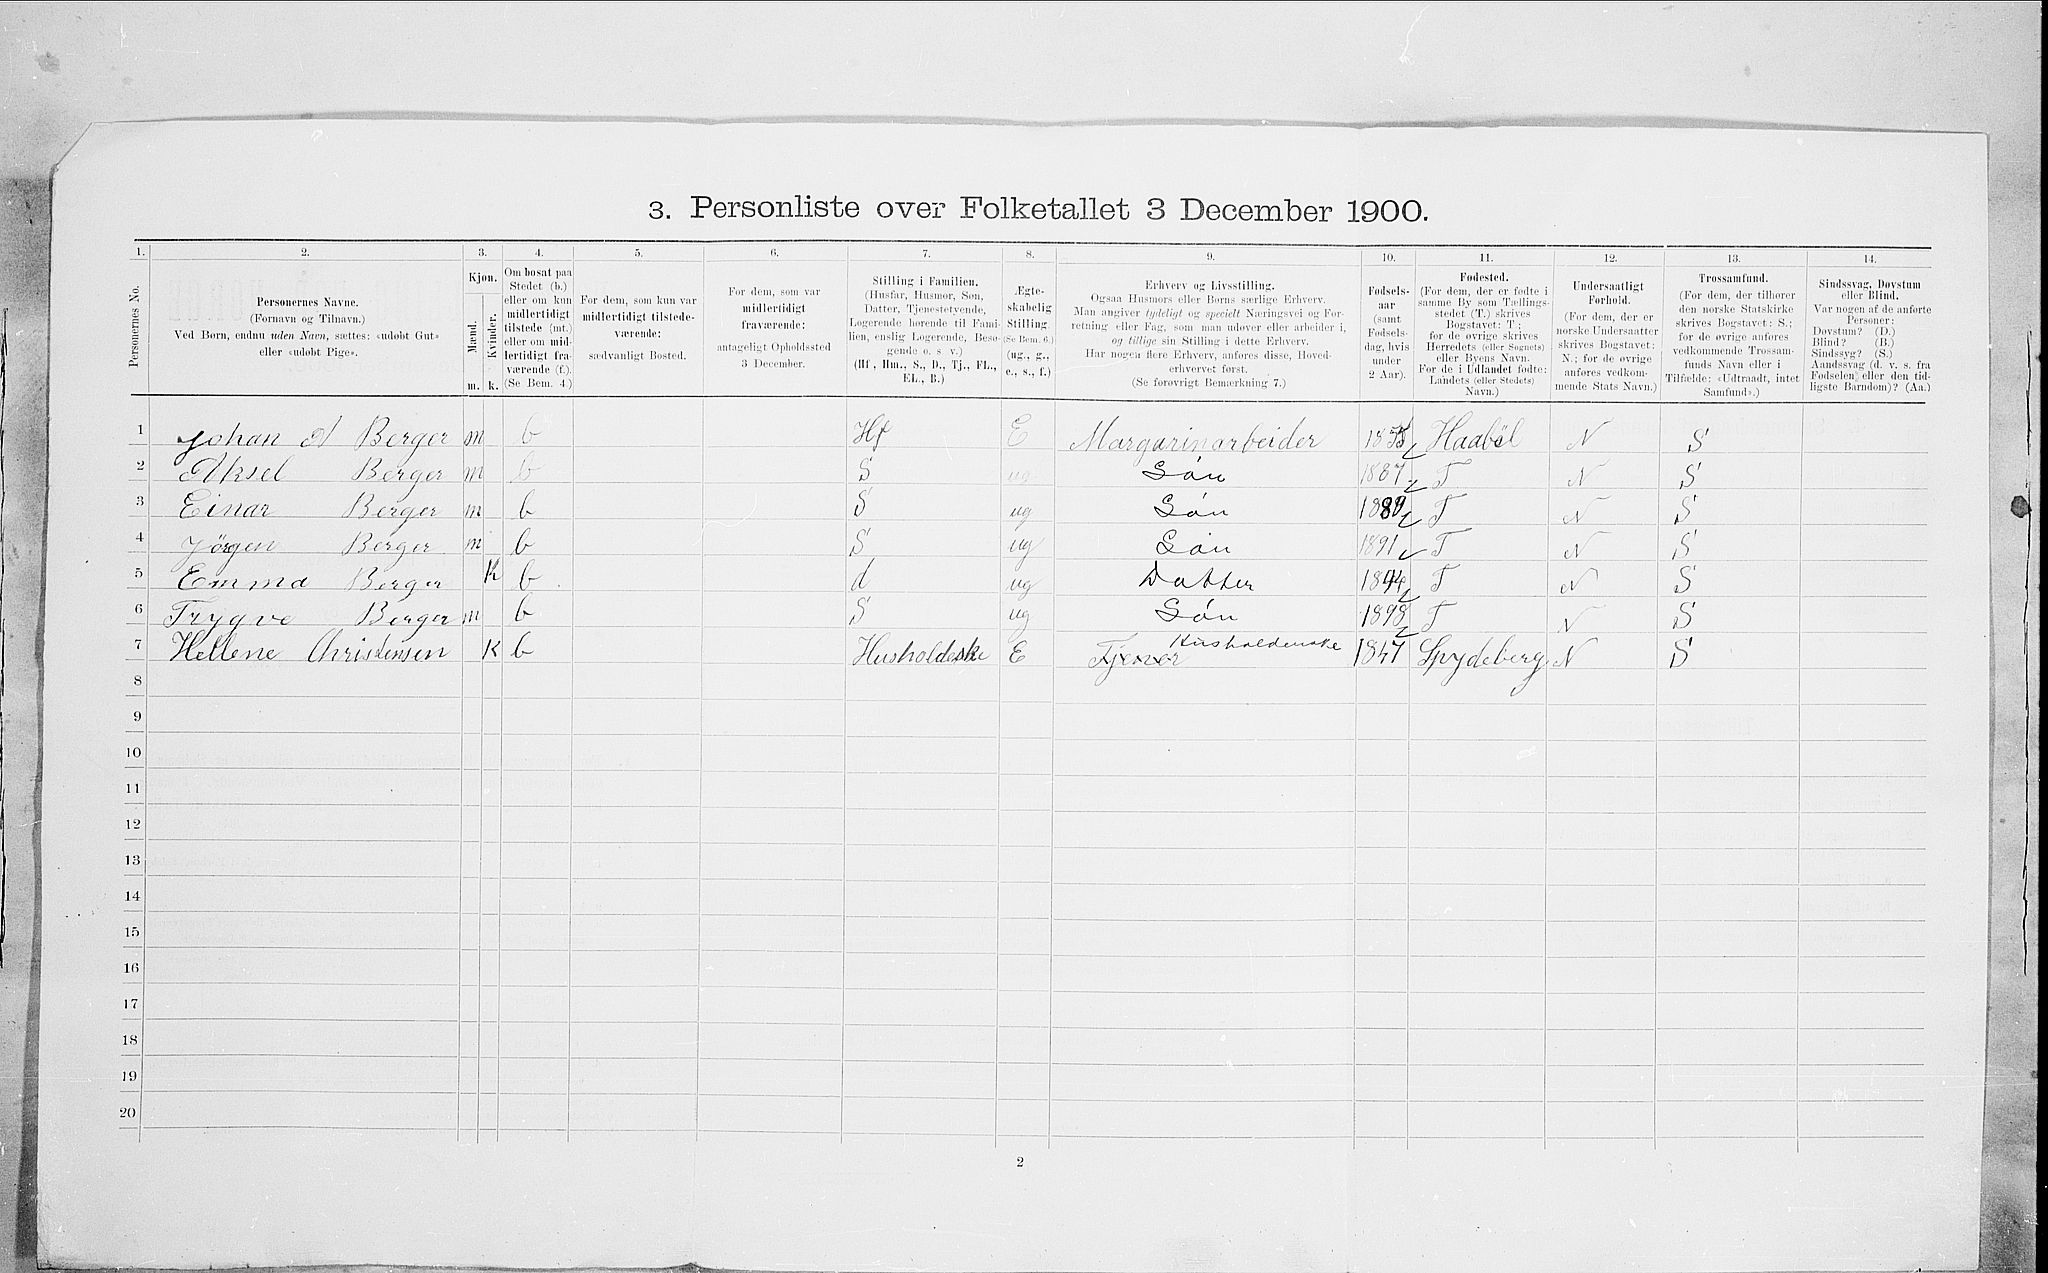 3. Personliste over Folketallet 3 December 1900.
1. 2. 3. 4. 5. 6. 7. 8. 9. 10. 11. 12. 13. 14.
Personernes No.
Personernes Navne.
(Fornavn og Tilnavn.)
Ved Børn, endnu uden Navn, sættes: «udøbt Gut»
eller «udøbt Pige».
Kjøn.
Mænd.
Kvinder.
m. k.
Om bosat paa
Stedet (b.)
eller om kun
midlertidigt
tilstede (mt.)
eller om mid-
lertidigt fra-
værende (f.).
(Se Bem. 4.)
For dem, som kun var
midlertidigt tilstede-
værende:
sædvanligt Bosted.
For dem, som var
midlertidigt
fraværende:
antageligt Opholdssted
3 December.
Stilling i Familien.
(Husfar, Husmor, Søn,
Datter, Tjenestetyende,
Logerende hørende til Fami-
lien, enslig Logerende, Besø-
gende o. s v.)
(Hf., Hm., S., D., Tj., FL.,
EL., B.)
Ægte-
skabelig
Stilling.
(Se Bem. 6.)
(ug., g.,
e., s., f.)
Erhverv og Livsstilling.
Ogsaa Husmors eller Børns særlige Erhverv.
Man angiver tydeligt og specielt Næringsvei og For-
retning eller Fag, som man udøver eller arbeider i,
og tillige sin Stilling i dette Erhverv.
Har nogen flere Erhverv, anføres disse, Hoved-
erhvervet først.
(Se forøvrigt Bemærkning 7.)
Fødsels-
aar
(samt
Fødsels-
dag, hvis
under
2 Aar).
Fødested.
(For dem, der er fødte i
samme By som Tællings-
stedet (T.) skrives
Bogstavet: T;
for de øvrige skrives
Herredets (eller Sognets)
eller Byens Navn.
For de i Udlandet fødte:
Landets (eller Stedets)
Navn.)
Undersaatligt
Forhold.
(For dem, der er
norske Undersaatter
skrives Bogstavet:
N.; for de øvrige
anføres vedkom-
mende Stats Navn.)
Trossamfund.
(For dem, der tilhører
den norske Statskirke
skrives Bogstavet: S.;
for de øvrige anføres
vedkommende Trossam-
funds Navn eller i
Tilfælde: «Udtraadt, intet
Samfund».)
Sindssvag, Døvstum
eller Blind.
Var nogen af de anførte
Personer:
Døvstum? (D.)
Blind? (B.)
Sindssyg? (S.)
Aandssvag (d. v. s. fra
Fødselen eller den tid-
ligste Barndom)? (Aa.)
1 Johan A Berger m b Hf E Margarinarbeider Haabøl N S
2 Aksel Berger m b S ug Søn 1887 T N S
3 Einar Berger m b S ug Søn T N S
4 Jørgen Berger m b S ug Søn 1891 T N S
5 Emma Berger K b d ug Datter T N S
6 Trygve Berger m b S ug Søn 1898 T N S
7 Hellene Christensen K b Husholdeske E Tjener Husholderske 1847 Spydeberg N S
8
9
10
11
12
13
14
15
16
17
18
19
20
2